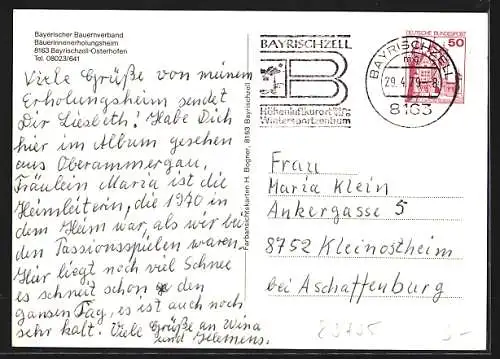 Bayerischer Bauernverband
Bäuerinnenerholungsheim
8163 Bayrischzell-Osterhofen
Tel. 08023/641
Viele Grüße von meinem
Erholungsheim sendet
Dir Liesbeth! Habe Dich
hier im Album gesehen
aus Oberammergau,
Fräulein Maria ist die
Heimleiterin, die 1970 in
dem Heim war, als wir bei
den Passionsspielen waren,
Hier liegt noch viel Schnee
es schneit schon den
ganzen Tag, es ist auch noch
sehr kalt. Viele Grüße an Wina
und Klemens.
Farbansichtskarten H. Bogner, 8163 Bayrischzell
BAYRISCHZELL
B
Höhenluftkurort
Wintersportzentrum
BAYRISCHZELL
29.4.79-8
8163
DEUTSCHE BUNDESPOST
50
Frau
Maria Klein
Ankergasse 5
8752 Kleinostheim
bei Aschaffenburg